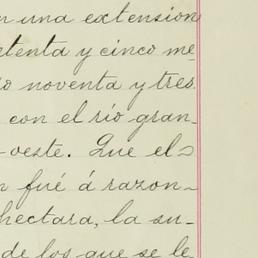 n una extension
etenta y cinco me
o noventa y tres
con el río gran-
-oeste. Que el
n fué á razon-
hectara, la su-
de los que se le